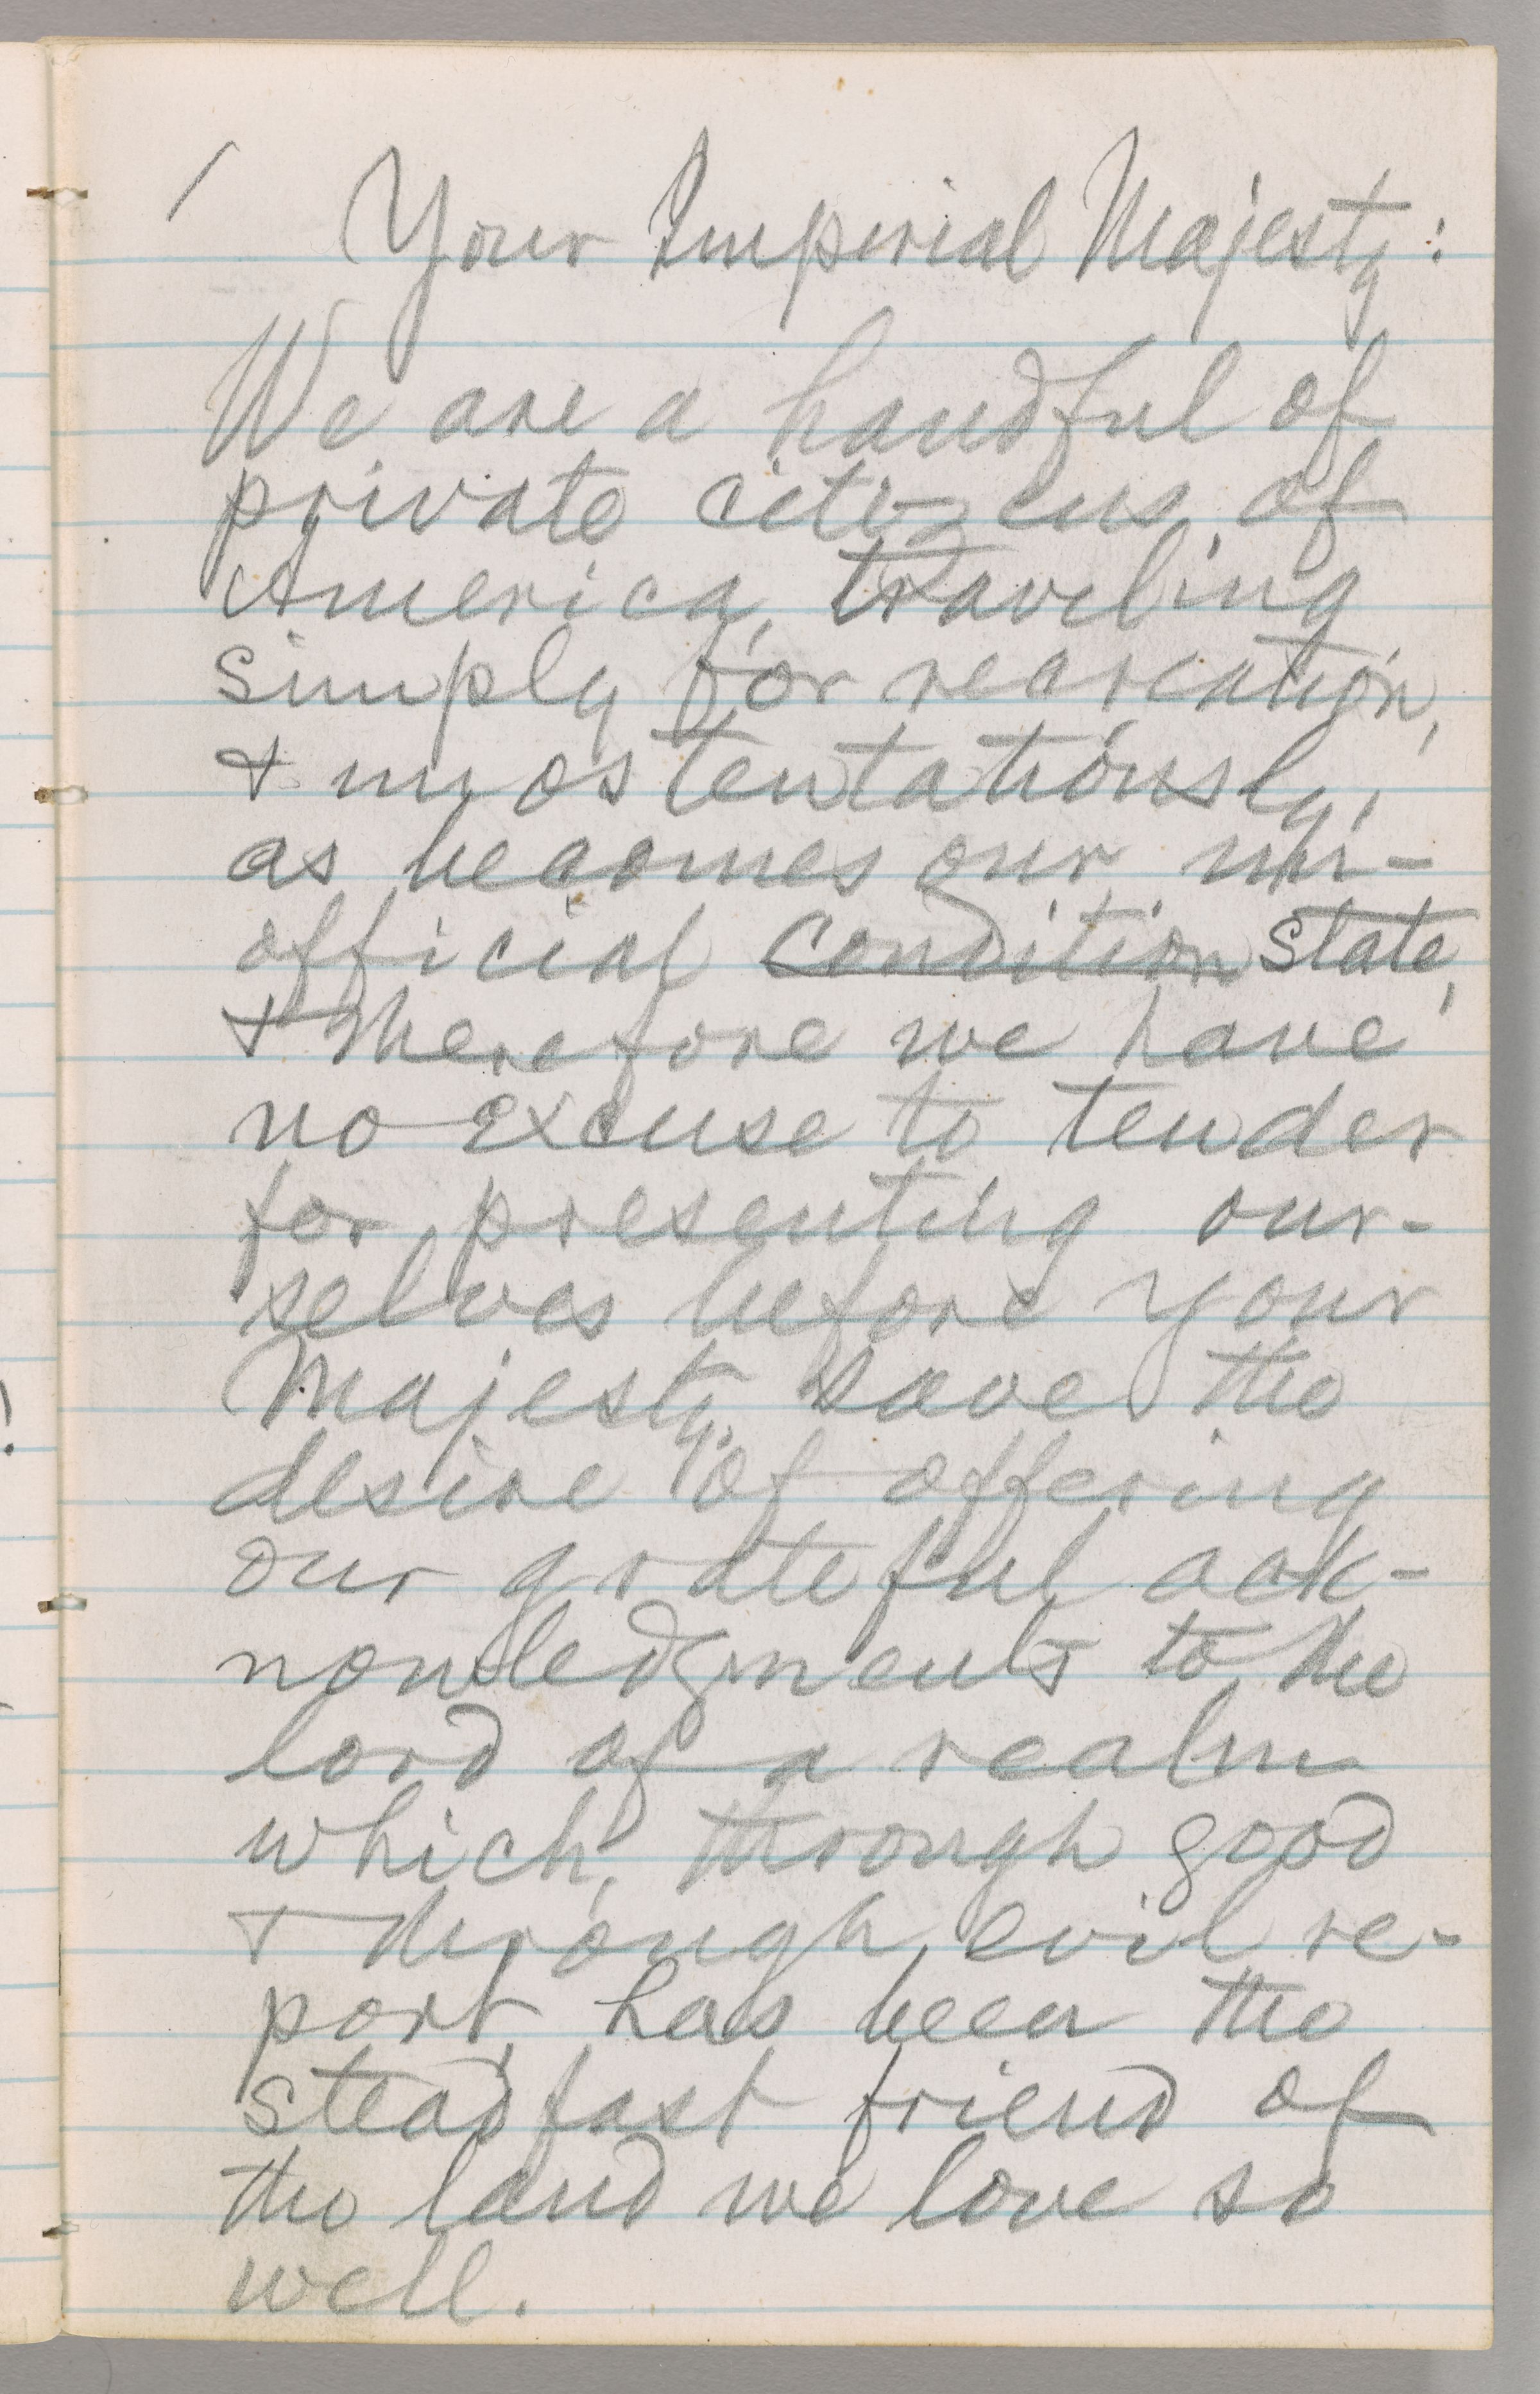 / Your Imperial Majesty:
We are a handful of
private citizens of
America, traveling
simply for recreation,
& unostentatiously,
as becomes our un-
official condition state,
& therefore we have
no excuse to tender
for presenting our-
selves before your
Majesty save the
desire of offering
our grateful ack-
nowledgments to the
lord of a realm
which, through good
& through evil re-
port, has been the
steadfast friend of
the land we love so
well.